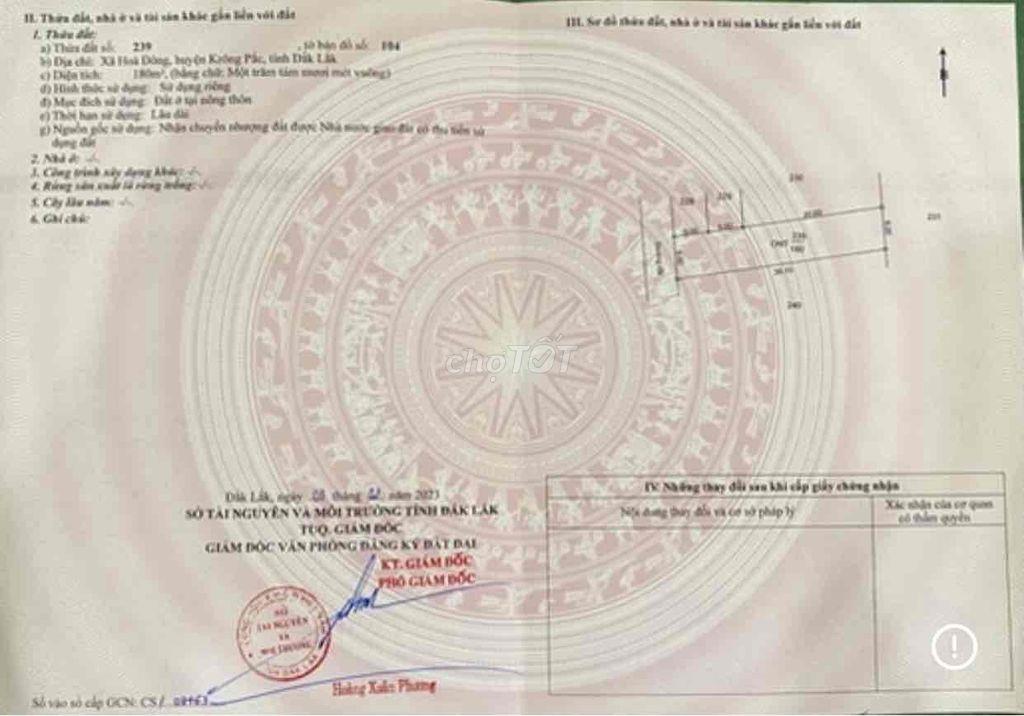 II. Thửa đất, nhà ở và tài sản khác gắn liền với đất
1. Thửa đất:
a) Thửa đất số: 239 , tờ bản đồ số: 104
b) Địa chỉ: Xã Hoà Đông, huyện Krông Pắc, tỉnh Đắk Lắk
c) Diện tích: 180m², (bằng chữ: Một trăm tám mươi mét vuông)
d) Hình thức sử dụng: Sử dụng riêng
đ) Mục đích sử dụng: Đất ở tại nông thôn
e) Thời hạn sử dụng: Lâu dài
g) Nguồn gốc sử dụng: Nhận chuyển nhượng đất được Nhà nước giao đất có thu tiền sử
dụng đất
2. Nhà ở: -/-
3. Công trình xây dựng khác: -/-
4. Rừng sản xuất là rừng trồng: -/-
5. Cây lâu năm: -/-
6. Ghi chú:
III. Sơ đồ thửa đất, nhà ở và tài sản khác gắn liền với đất
230
228
229
231
5.00
ONT 239
180
36.00
240
chợTỐT
Đắk Lắk, ngày 08 tháng 02 năm 2023
SỞ TÀI NGUYÊN VÀ MÔI TRƯỜNG TỈNH ĐẮK LẮK
TUQ. GIÁM ĐỐC
GIÁM ĐỐC VĂN PHÒNG ĐĂNG KÝ ĐẤT ĐAI
KT. GIÁM ĐỐC
PHÓ GIÁM ĐỐC
SỞ
TÀI NGUYÊN
VÀ
MÔI TRƯỜNG
Hoàng Xuân Phương
Số vào sổ cấp GCN: CS
IV. Những thay đổi sau khi cấp giấy chứng nhận
Nội dung thay đổi và cơ sở pháp lý
Xác nhận của cơ quan
có thẩm quyền